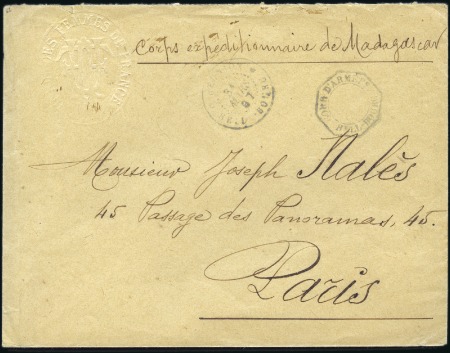 Corps expéditionnaire de Madagascar
Monsieur Joseph Nalès
45 Passage des Panoramas, 45.
Paris